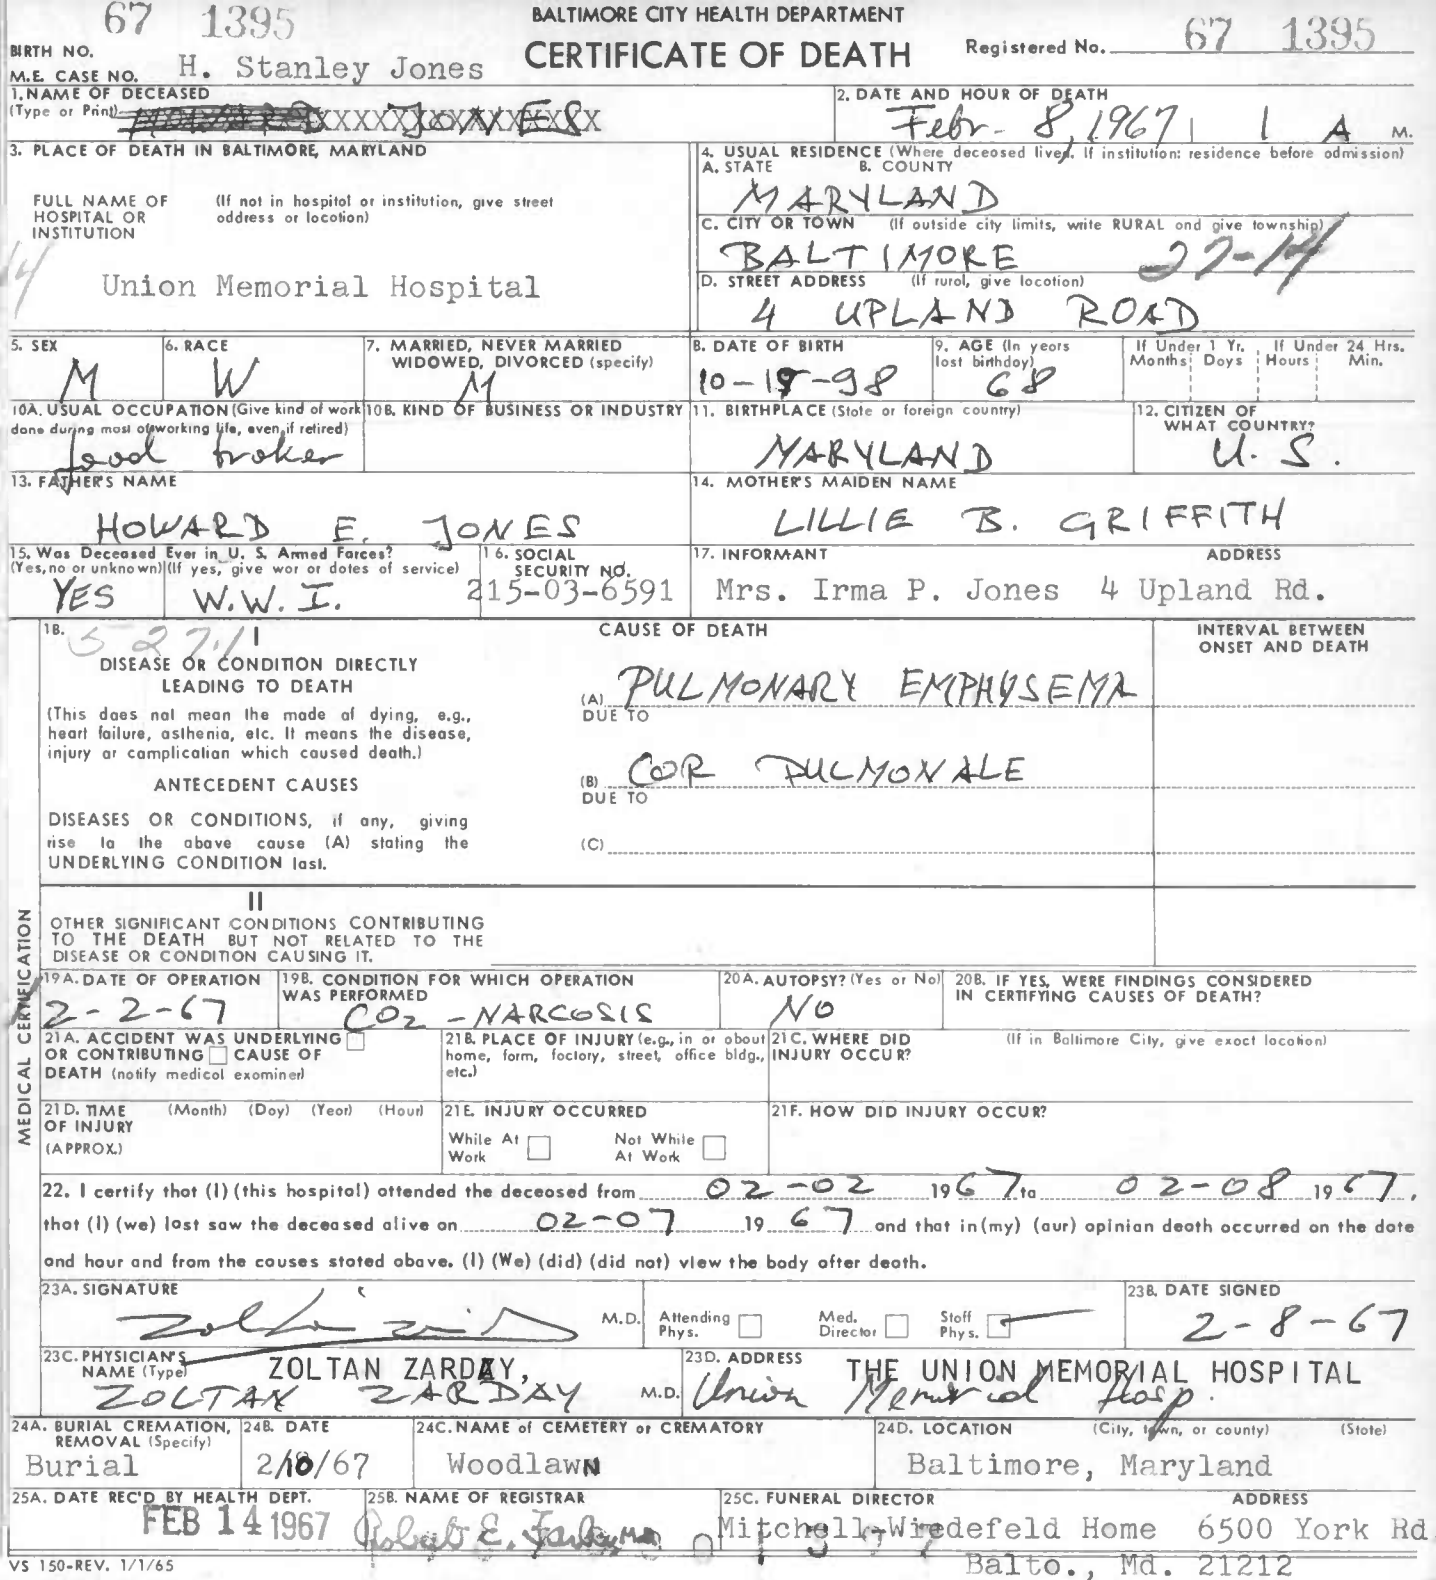 67 1395
BALTIMORE CITY HEALTH DEPARTMENT
CERTIFICATE OF DEATH
Registered No. 67 1395
BIRTH NO.
M.E. CASE NO.
H. Stanley Jones
1. NAME OF DECEASED
(Type or Print)
JONES
2. DATE AND HOUR OF DEATH
Febr- 8, 1967 1 A M.
3. PLACE OF DEATH IN BALTIMORE, MARYLAND
FULL NAME OF HOSPITAL OR INSTITUTION
(If not in hospital or institution, give street address or location)
14
Union Memorial Hospital
4. USUAL RESIDENCE (Where deceased lived. If institution: residence before admission)
A. STATE B. COUNTY
MARYLAND
C. CITY OR TOWN (If outside city limits, write RURAL and give township)
BALTIMORE 27-14
D. STREET ADDRESS (If rural, give location)
4 UPLAND ROAD
5. SEX
M
6. RACE
W
7. MARRIED, NEVER MARRIED
WIDOWED, DIVORCED (specify)
M
8. DATE OF BIRTH
10-
-98
9. AGE (In years
last birthday)
68
If Under 1 Yr.
Months Days
If Under 24 Hrs.
Hours Min.
10A. USUAL OCCUPATION (Give kind of work
done during most of working life, even if retired)
food broker
10B. KIND OF BUSINESS OR INDUSTRY
11. BIRTHPLACE (State or foreign country)
MARYLAND
12. CITIZEN OF
WHAT COUNTRY?
U. S.
13. FATHER'S NAME
HOWARD E. JONES
14. MOTHER'S MAIDEN NAME
LILLIE B. GRIFFITH
15. Was Deceased Ever in U. S. Armed Forces?
(Yes, no or unknown) (If yes, give war or dates of service)
YES W.W. I.
16. SOCIAL
SECURITY NO.
215-03-6591
17. INFORMANT ADDRESS
Mrs. Irma P. Jones 4 Upland Rd.
MEDICAL CERTIFICATION
18. 527.1 I
DISEASE OR CONDITION DIRECTLY
LEADING TO DEATH
(This does not mean the mode of dying, e.g.,
heart failure, asthenia, etc. It means the disease,
injury or complication which caused death.)
ANTECEDENT CAUSES
DISEASES OR CONDITIONS, if any, giving
rise to the above cause (A) stating the
UNDERLYING CONDITION last.
CAUSE OF DEATH
(A) PULMONARY EMPHYSEMA
DUE TO
(B) COR PULMONALE
DUE TO
(C)
INTERVAL BETWEEN
ONSET AND DEATH
II
OTHER SIGNIFICANT CONDITIONS CONTRIBUTING
TO THE DEATH BUT NOT RELATED TO THE
DISEASE OR CONDITION CAUSING IT.
19A. DATE OF OPERATION
2-2-67
19B. CONDITION FOR WHICH OPERATION
WAS PERFORMED
CO2 -NARCOSIS
20A. AUTOPSY? (Yes or No)
NO
20B. IF YES, WERE FINDINGS CONSIDERED
IN CERTIFYING CAUSES OF DEATH?
21A. ACCIDENT WAS UNDERLYING
OR CONTRIBUTING CAUSE OF
DEATH (notify medical examiner)
21B. PLACE OF INJURY (e.g., in or about
home, farm, factory, street, office bldg.,
etc.)
21C. WHERE DID
INJURY OCCUR?
(If in Baltimore City, give exact location)
21D. TIME (Month) (Day) (Year) (Hour)
OF INJURY
(APPROX.)
21E. INJURY OCCURRED
While At Work
Not While At Work
21F. HOW DID INJURY OCCUR?
22. I certify that (I) (this hospital) attended the deceased from 02-02 1967 to 02-08 1967,
that (I) (we) last saw the deceased alive on 02-07 1967 and that in (my) (our) opinion death occurred on the date
and hour and from the causes stated above. (I) (We) (did) (did not) view the body after death.
23A. SIGNATURE
M.D.
Attending Phys.
Med. Director
Staff Phys.
23B. DATE SIGNED
2-8-67
23C. PHYSICIAN'S
NAME (Type)
ZOLTAN ZARDAY,
ZOLTAN ZARDAY M.D.
23D. ADDRESS
THE UNION MEMORIAL HOSPITAL
Union Memorial Hosp.
24A. BURIAL CREMATION,
REMOVAL (Specify)
Burial
24B. DATE
2/10/67
24C. NAME of CEMETERY or CREMATORY
Woodlawn
24D. LOCATION (City, town, or county) (State)
Baltimore, Maryland
25A. DATE REC'D BY HEALTH DEPT.
FEB 14 1967
25B. NAME OF REGISTRAR
Robert E. Farber, M.D.
25C. FUNERAL DIRECTOR ADDRESS
Mitchell-Wiedefeld Home 6500 York Rd
Balto., Md. 21212
VS 150-REV. 1/1/65